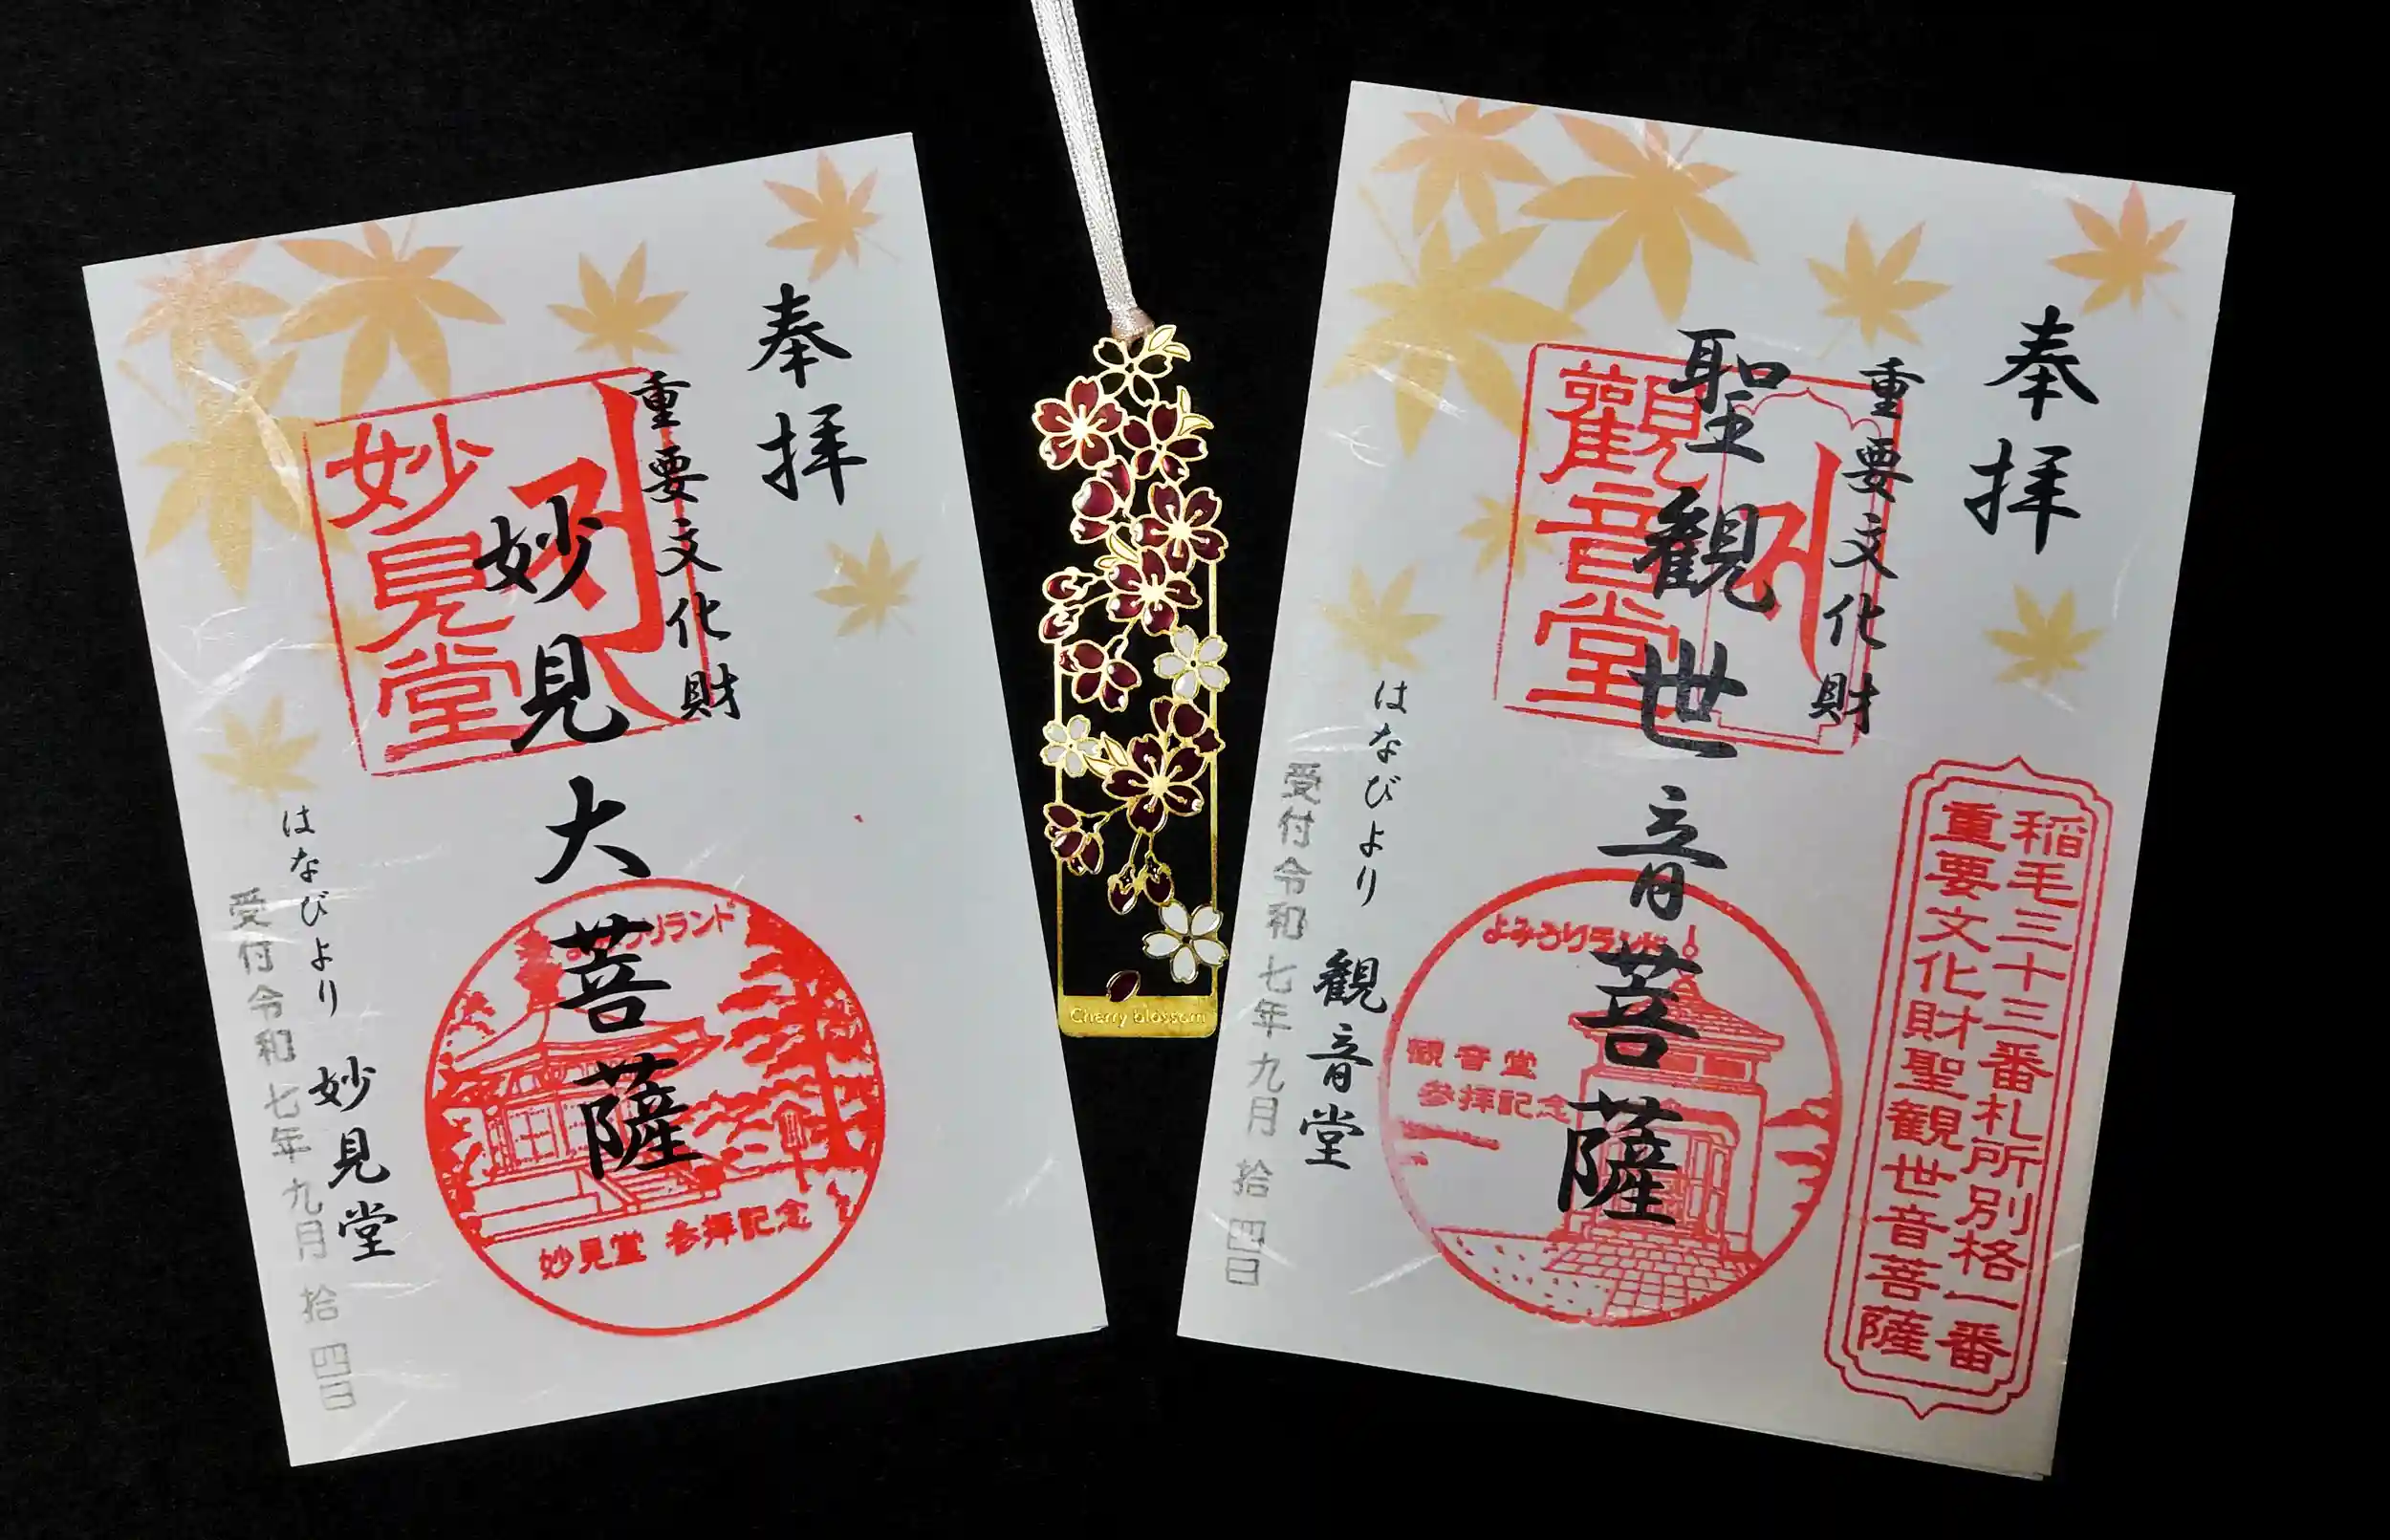 奉拝
重要文化財
妙見大菩薩
妙見堂
ランド
妙見堂 参拝記念
はなびより 妙見堂
受付令和七年九月拾四日
Cherry blossom
奉拝
重要文化財
聖観世音菩薩
觀音堂
稲毛三十三番札所別格一番
重要文化財聖観世音菩薩
よみうりランド
観音堂
参拝記念
はなびより 観音堂
受付令和七年九月拾四日